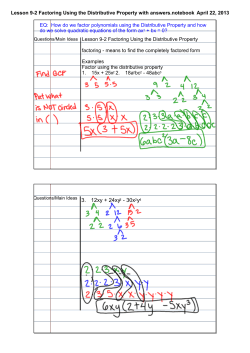 Lesson 9-2 Factoring Using the Distributive Property with answers.notebook April 22, 2013
EQ: How do we factor polynomials using the Distributive Property and how
do we solve quadratic equations of the form ax² + bx = 0?
Questions/Main Ideas Lesson 9-2 Factoring Using the Distributive Property
factoring - means to find the completely factored form
Examples
Factor using the distributive property
Find GCF
1. 15x + 25x² 2. 18a²bc² - 48abc³
3 5 5·5 9 2 4 12
3 3 2 2 3 4
2 2
Put what
is NOT circled
in ( )
5·5 x x
5x(3 + 5x)
6abc²(3a - 8c)
Questions/Main Ideas 3. 12xy + 24xy² - 30x²y⁴
3 4 2 12 5 2
2 2 2 6 3 5
3 2
6xy(2+4y - 5xy³)